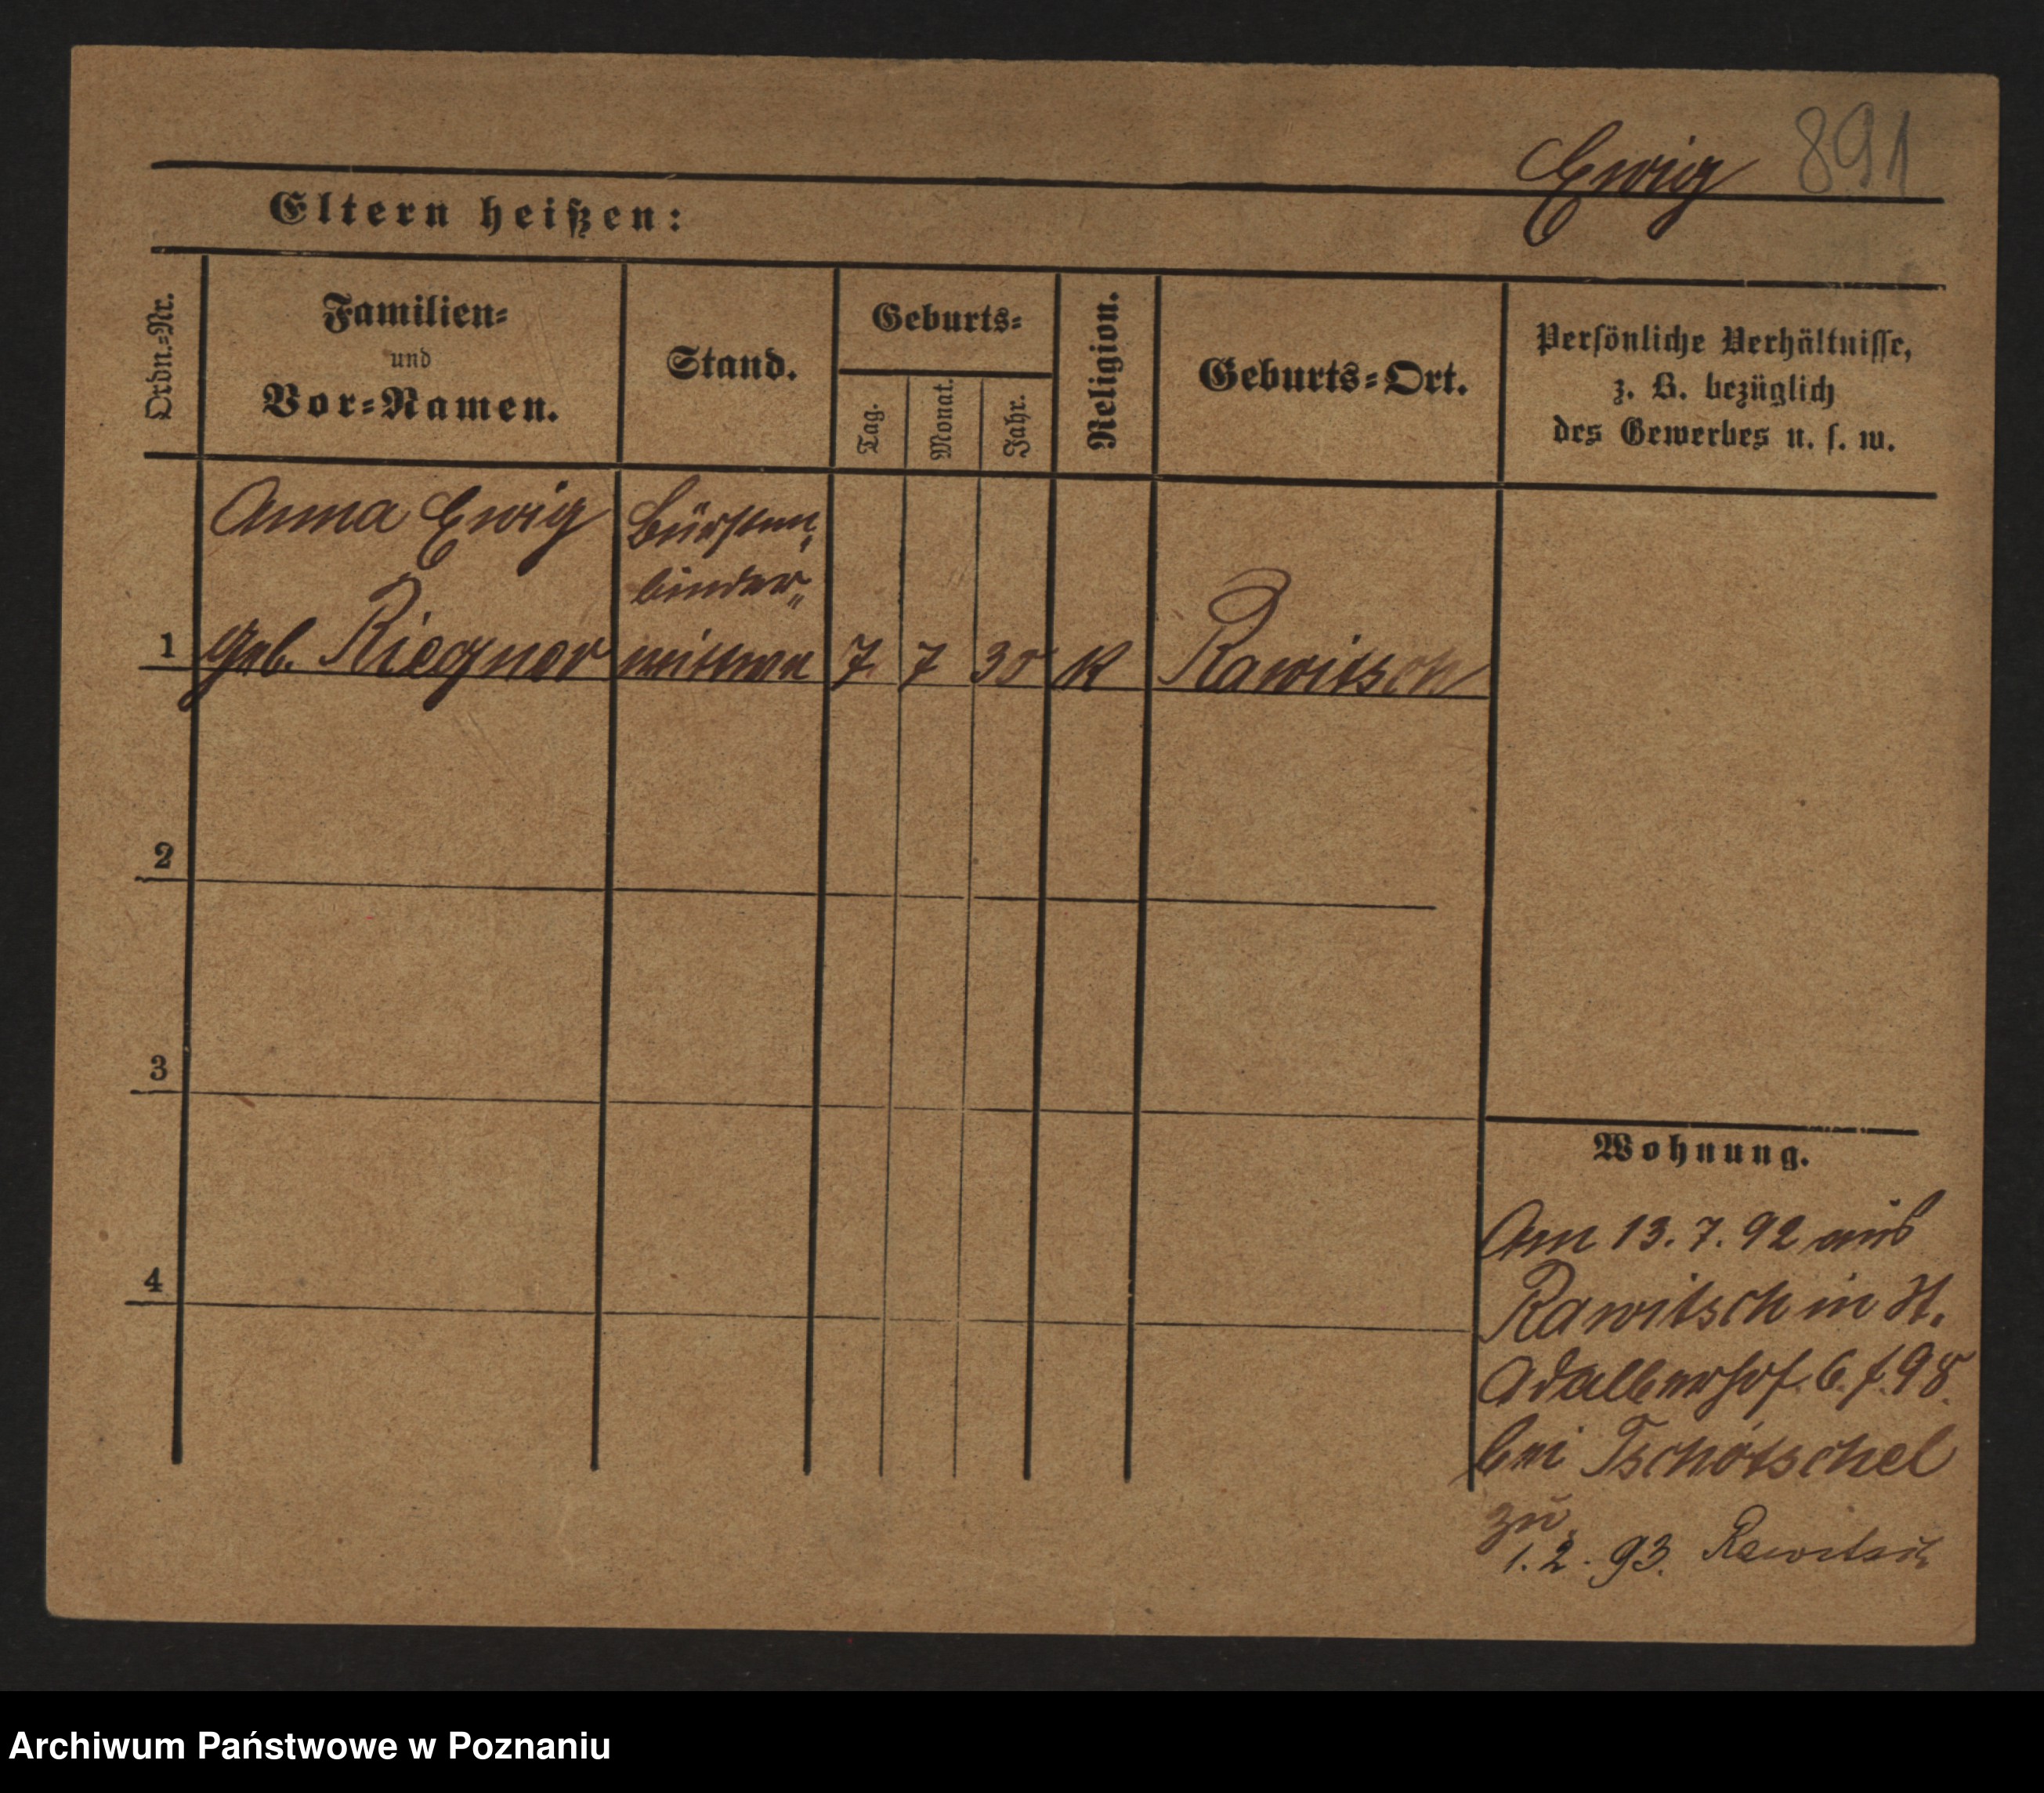 Ewig 891
Eltern heißen:
Ordn.=Nr.
Familien=
und
Vor=Namen.
Stand.
Geburts=
Tag.
Monat.
Jahr.
Religion.
Geburts=Ort.
Persönliche Verhältnisse,
z. B. bezüglich
des Gewerbes u. s. w.
Anna Ewig
geb. Riegner
Bürsten
binder
wittwe
1 7 7 30 K Rawitsch
2
3
4
Wohnung.
Am 13.7.92 aus
Rawitsch in St.
6.
bei Tschötschel
zu
1.2.93. Rawitsch
Archiwum Państwowe w Poznaniu